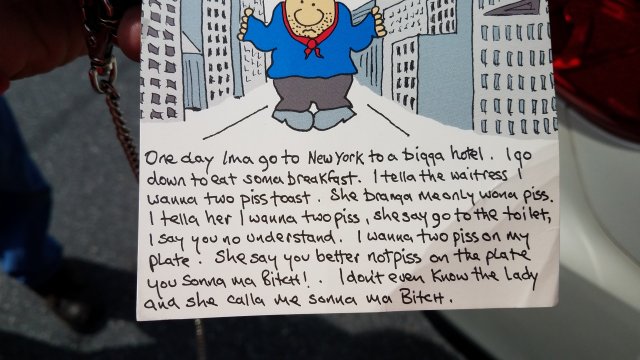 One day Ima go to New York to a bigga hotel. I go
down to eat soma breakfast. I tella the waitress I
wanna two piss toast. She branga me only wona piss.
I tella her I wanna two piss, she say go to the toilet,
I say you no understand. I wanna two piss on my
plate. She say you better not piss on the plate
you Sonna ma Bitch!. I don't even know the Lady
and she calla me sonna ma Bitch.